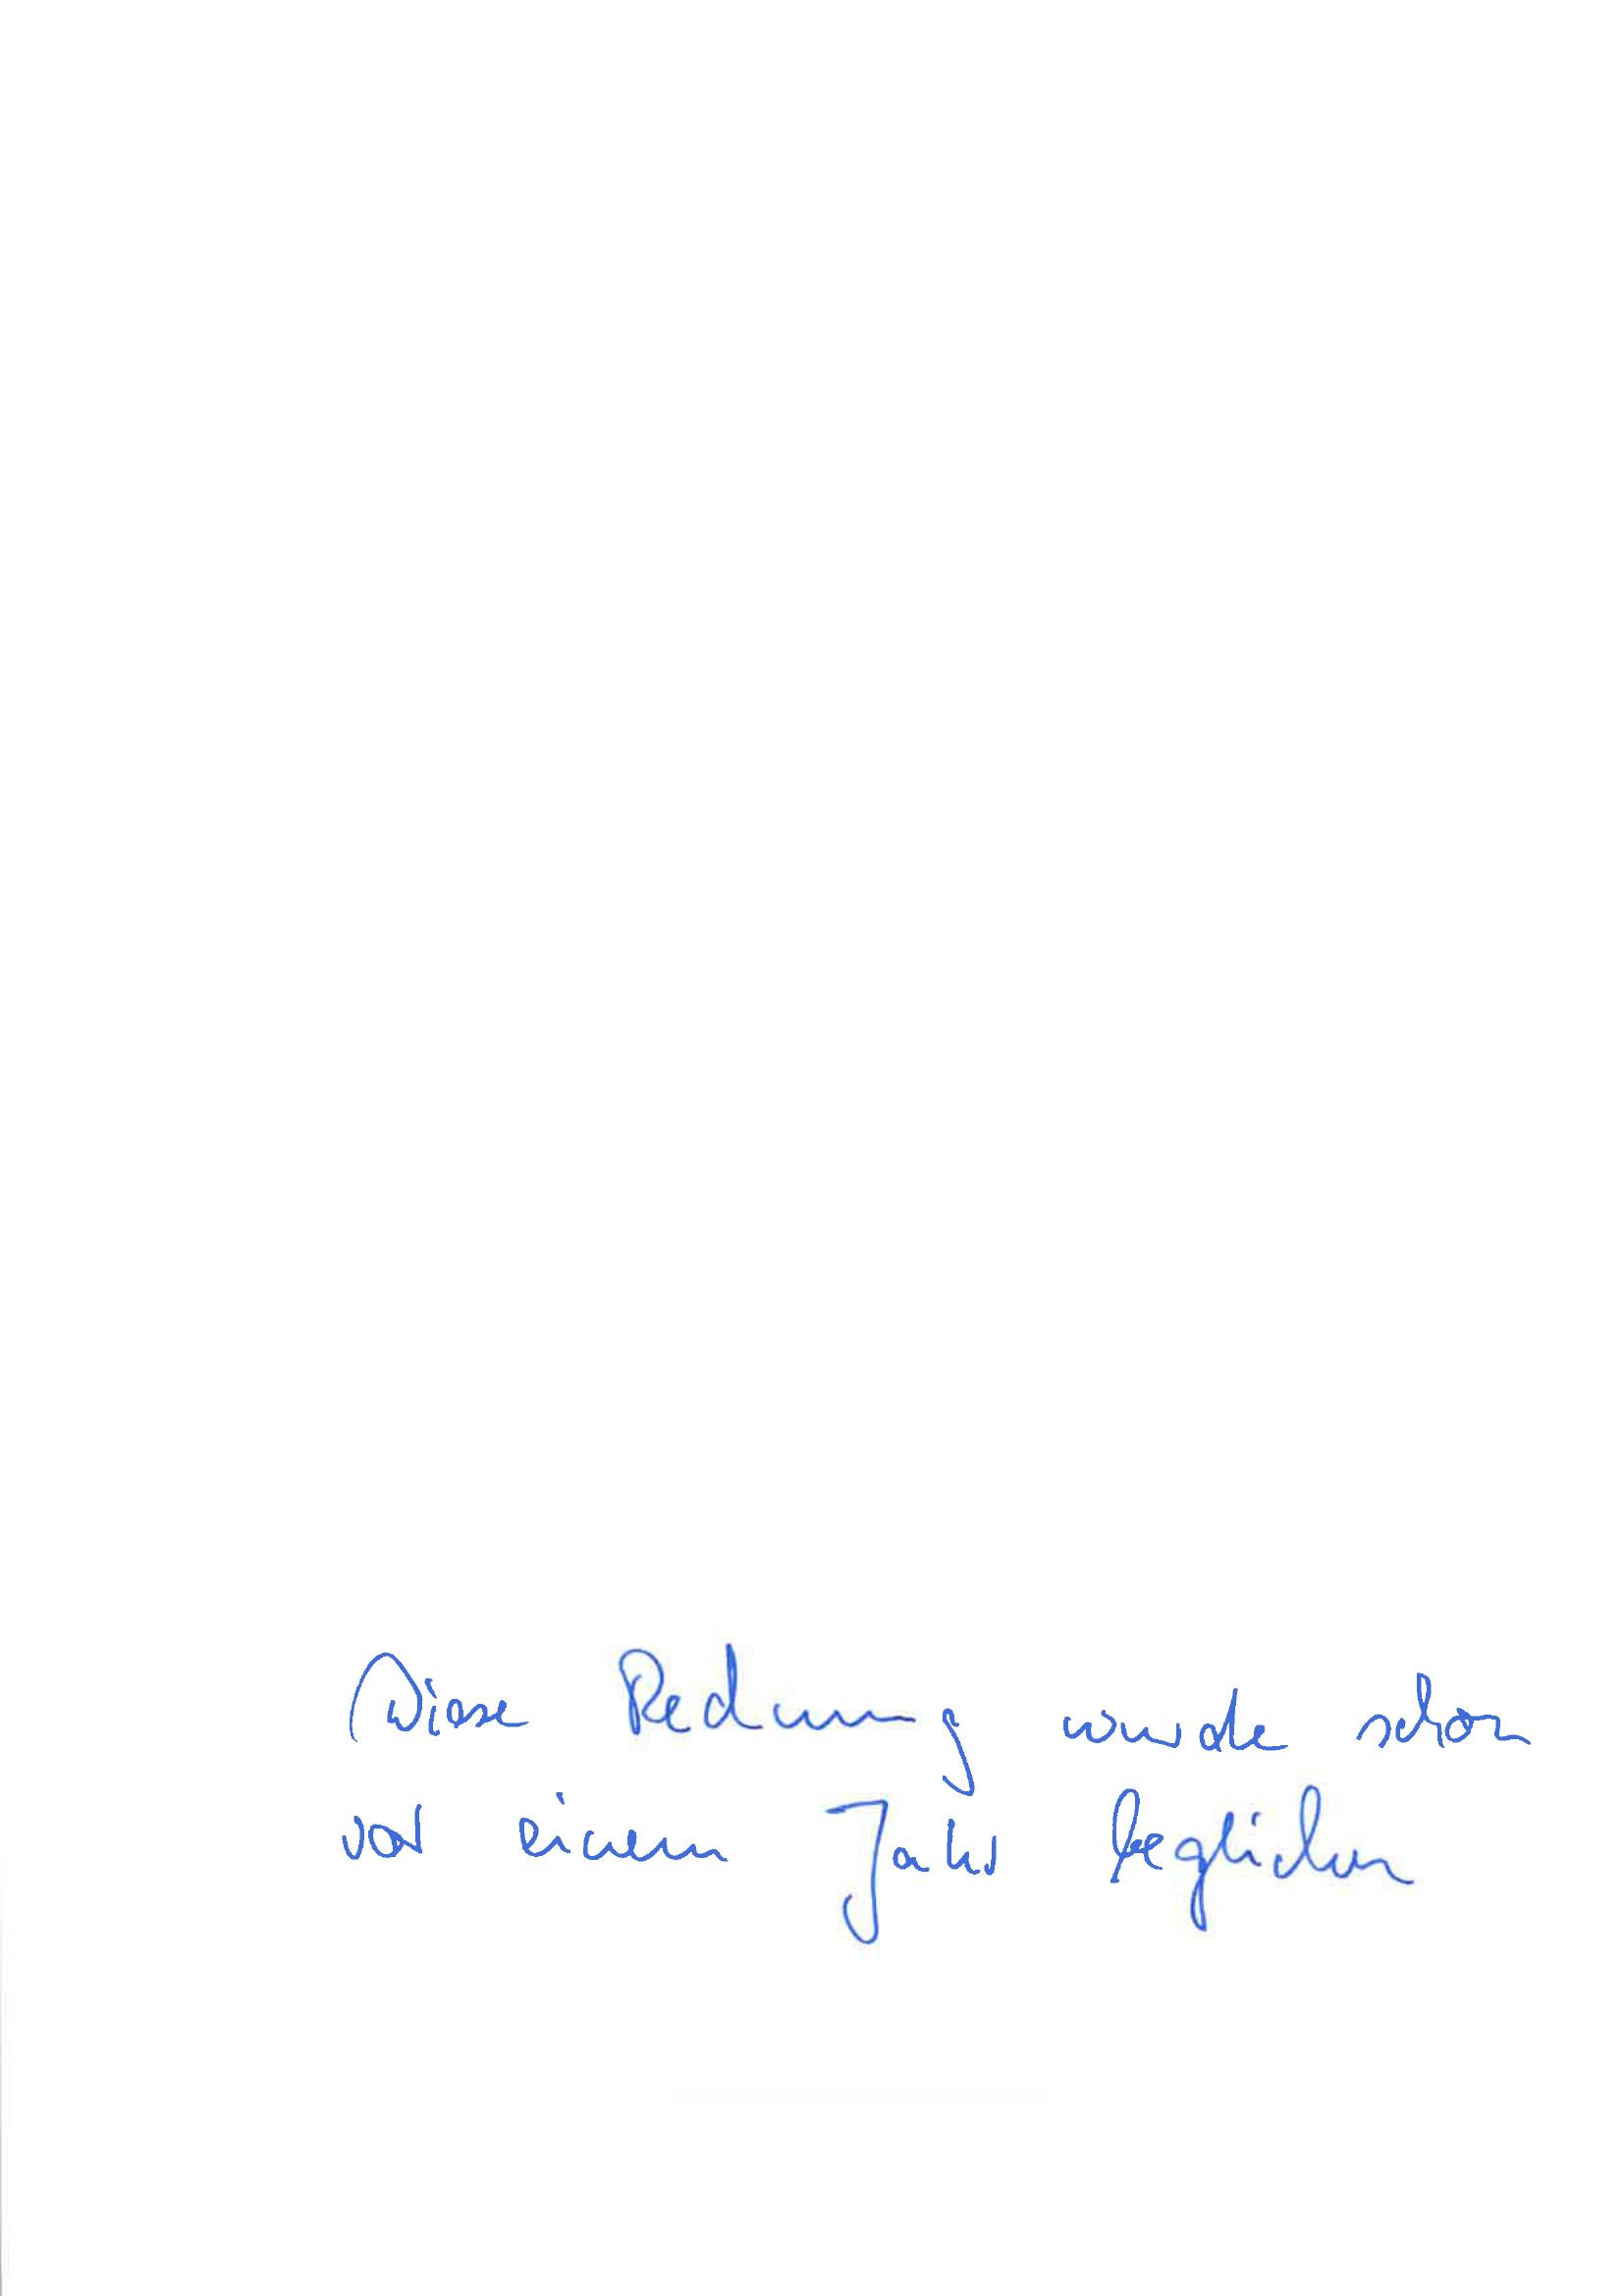 Diese Rechnung wurde schon
vor einem Jahr beglichen